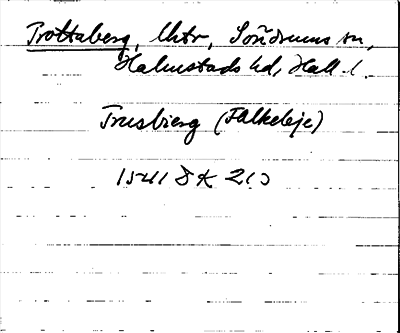 Prottaberg, Uktr, Söndrums sn,
Halmstads hd, Hall. l.
Trusbierg (Falkeleje)
1541 SK 210